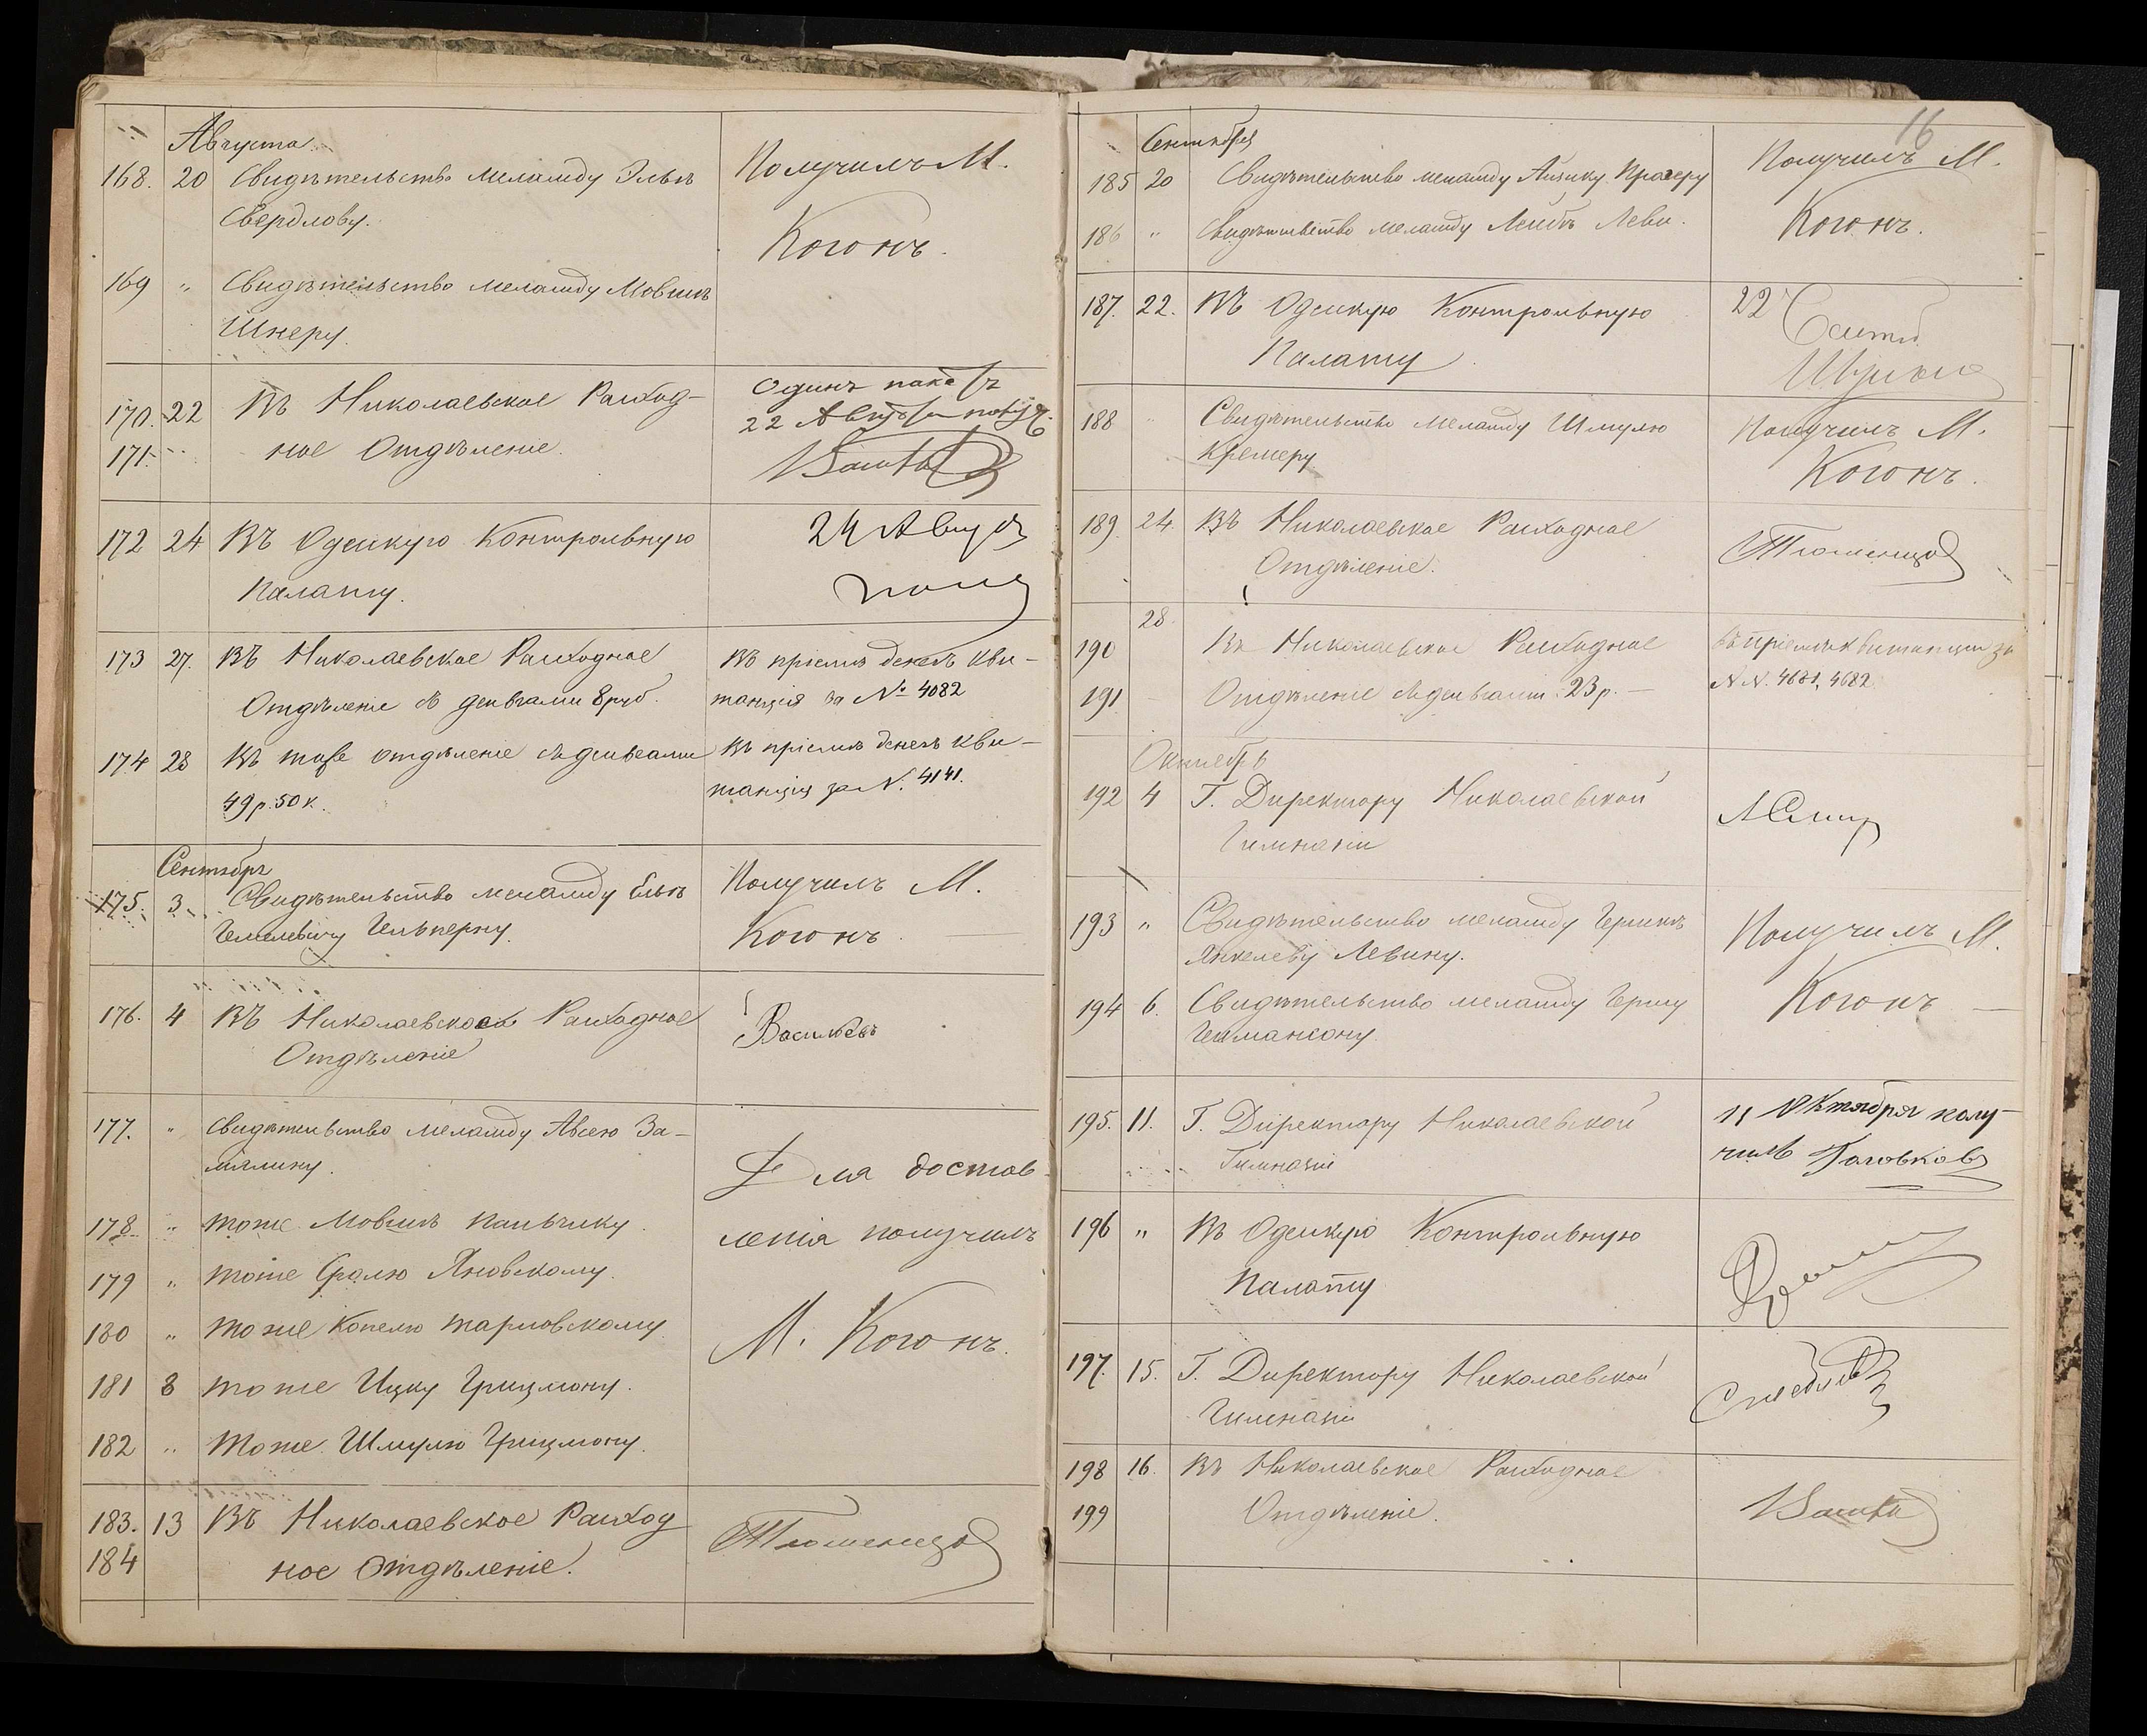 Августа
168. 20 Свидѣтельство меламду Элькѣ
Свердлову.
Получилъ М.
Когонъ.
169 " Свидѣтельство меламду Мовшѣ
Шнеру.
170. 22 Въ Николаевское Расход-
171. " ное Отдѣленіе.
Одинъ пакетъ
22 Августа получ.
172 24 Въ Одесскую Контрольную
Палату.
24 Август
173 27. Въ Николаевское Расходное
Отдѣленіе съ деньгами 8 руб.
Въ пріемѣ денегъ кви-
танція за № 4082
174 28 Въ тоже отдѣленіе съ деньгами
49 р. 50 к.
Въ пріемѣ денегъ кви-
танція за N. 4141.
Сентябрь
175. 3 Свидѣтельство меламду Елькѣ
Гельперну.
Получилъ М.
Когонъ.
176. 4 Въ Николаевское Расходное
Отдѣленіе
Васильевъ
177. " Свидѣтельство меламду Авсею За-
мялину.
178 " тоже Мовшѣ Пальчику.
179 " тоже Сролю Яновскому.
180 " тоже Копелю Тарловскому.
181 8 тоже Ицку Грицману.
182 " тоже Шмулю Грицману.
Для достав-
ленія получилъ
М. Когонъ.
183. 13 Въ Николаевское Расход
184 ное Отдѣленіе.
16
Сентября
185 20 Свидѣтельство меламду Айзику Прагеру
186 " Свидѣтельство меламду Лейбѣ Леви.
Получилъ М.
Когонъ.
187. 22. Въ Одесскую Контрольную
Палату
22 Сентяб.
188 " Свидѣтельство меламду Шмулю
Кремеру
Получилъ М.
Когонъ.
189. 24. Въ Николаевское Расходное
Отдѣленіе.
28
190 Въ Николаевское Расходное
191 Отдѣленіе съ деньгами 23 р. —
въ пріемѣ квитанціи за
N N. 4681, 4682
Октябрь
192 4 Г. Директору Николаевской
Гимназіи
193 " Свидѣтельство меламду Гершкѣ
Янкелеву Левину.
194 6. Свидѣтельство меламду Гершу
Геймансону.
Получилъ М.
Когонъ
195. 11. Г. Директору Николаевской
Гимназіи
11 Октября полу-
чилъ Головковъ
196 " Въ Одесскую Контрольную
Палату
197. 15. Г. Директору Николаевской
Гимназіи
198 16. Въ Николаевское Расходное
199 Отдѣленіе.